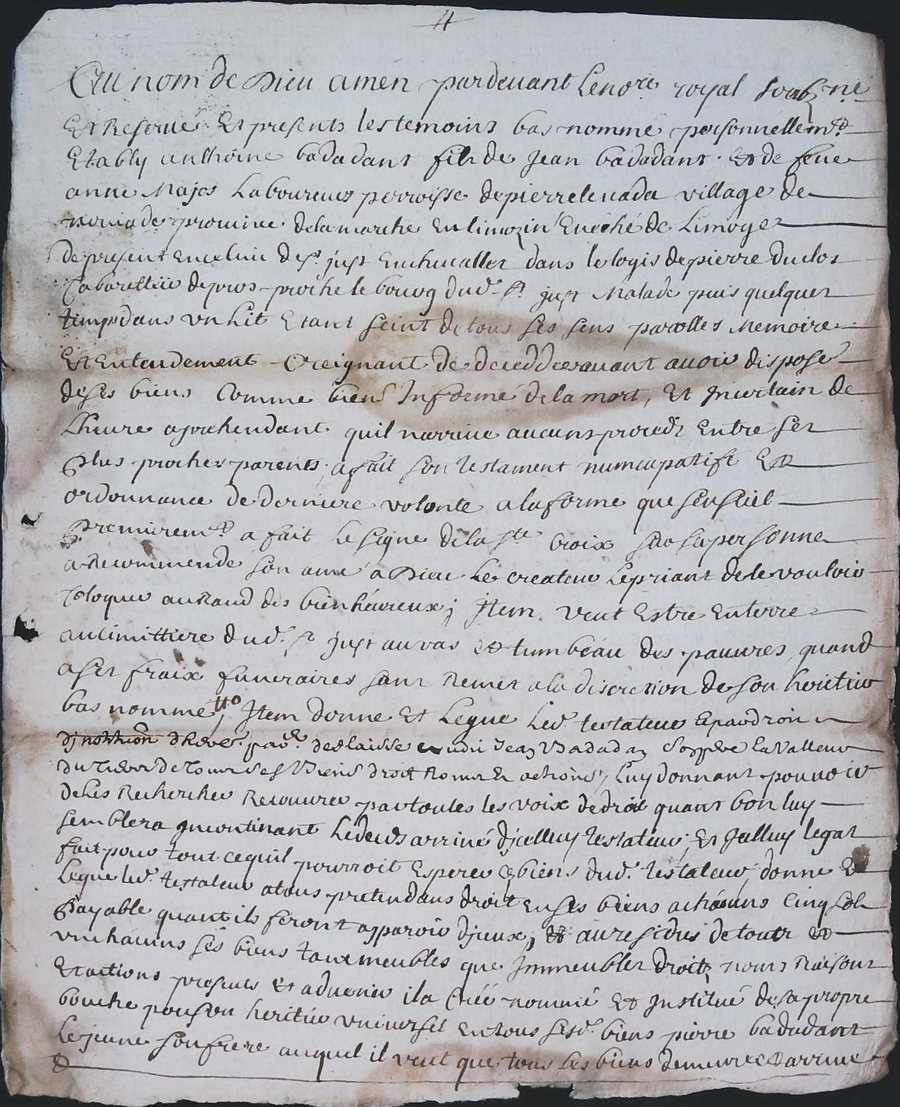 Au nom de Dieu amen pardevant Le no.re royal soub.né
Et Reservé Et presents les temoins bas nommé personnellem.t
Etably anthoine badadant fils de Jean badadant et de feue
anne Majos Laboureur perroisse de pierre village de
province de la marche En limozin Eveché de Limoges
de present En celui de s.t just En chevallet dans le logis de pierre duclos
Cabarettier proche le bourg dud. s.t just Malade puis quelques
temps dans un lit Etant seint de tous ses sens parolles Memoire
Et Entendement Creignant de deceder avant avoir disposé
de ses biens Comme bien Informé de la mort, Et Incertain de
Lheure aprehendant quil narrive aucuns proceds Entre ses
plus proches parents a fait son testament nuncupatift Et
ordonnance de derniere volonte a la forme que sensuit
Premierem.t a fait Le signe de la s.te croix sur sa personne
a Recommende son ame a Dieu Le createur Le priant de le vouloir
Coloquer au Rand des bienheureux; Item veut Estre Enterre
au cimittiere dud. s.t just au vas et tumbeau des pauvres quand
a ses fraix funeraires sant Remet a la discretion de son heritier
bas nommé, Item donne Et Legue Led. testateur
delaisse Jean Badadan La Valleur
de tous ses Biens droit Et actions, Luy donnant pouvoir
de les Rechercher Recouvrer par toutes les voix de droit quant bon luy
semblera Incontinant Le deceds arrivé dicelluy testateur Et Icelluy legat
fait pour tout ce quil pourroit Esperer biens dud. testateur, donne Et
Legue led. testateur a tous pretendans droit En ses biens a chacuns cinq sols
payable quant ils feront apparoir dIceux; et au residus de touts et
un chacuns ses biens tant meubles que Immeubles droits noms Raisons
Et actions presents Et advenir il a Créé nommé Et Institué de sa propre
bouche pour son heritier universel En tous sesd. biens pierre badadant
Le jeune son frere auquel il veut que tous ses biens